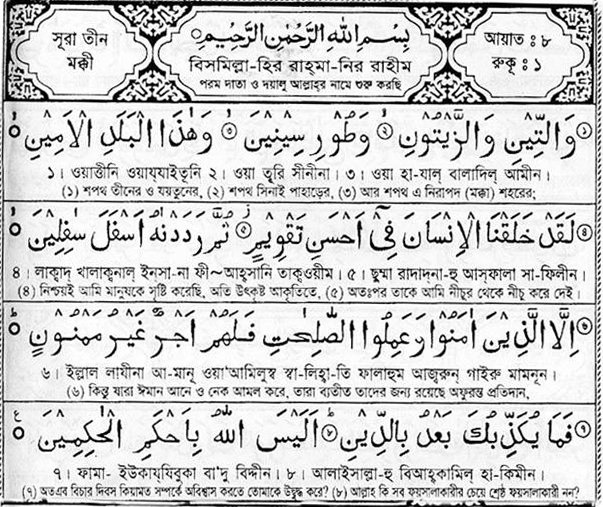 সূরা তীন
মক্কী
بِسْمِ اللّٰهِ الرَّحْمٰنِ الرَّحِيْمِ
বিসমিল্লা-হির রাহ্‌মা-নির রাহীম
পরম দাতা ও দয়ালু আল্লাহ্‌র নামে শুরু করছি
আয়াত : ৮
রুকূ : ১
وَالتِّيْنِ وَالزَّيْتُوْنِ وَطُوْرِ سِيْنِيْنَ وَهٰذَا الْبَلَدِ الْاَمِيْنِ
১। ওয়াত্তীনি ওয়ায্‌যাইতূনি ২। ওয়া ত্বূরি সীনীনা। ৩। ওয়া হা-যাল্‌ বালাদিল্‌ আমীন।
(১) শপথ তীনের ও যয়তুনের, (২) শপথ সিনাই পাহাড়ের, (৩) আর শপথ এ নিরাপদ (মক্কা) শহরের;
لَقَدْ خَلَقْنَا الْاِنْسَانَ فِىْٓ اَحْسَنِ تَقْوِيْمٍ ثُمَّ رَدَدْنٰهُ اَسْفَلَ سٰفِلِيْنَ
৪। লাক্বাদ্‌ খালাক্বনাল্‌ ইনসা-না ফী~আহ্‌সানি তাক্বওয়ীম। ৫। ছুম্মা রাদাদ্‌না-হু আস্‌ফালা সা-ফিলীন।
(৪) নিশ্চয়ই আমি মানুষকে সৃষ্টি করেছি, অতি উৎকৃষ্ট আকৃতিতে, (৫) অতঃপর তাকে আমি নীচুর থেকে নীচু করে দেই।
اِلَّا الَّذِيْنَ اٰمَنُوْا وَعَمِلُوا الصّٰلِحٰتِ فَلَهُمْ اَجْرٌ غَيْرُ مَمْنُوْنٍ
৬। ইল্লাল লাযীনা আ-মানূ ওয়া'আমিলুস্ব স্বা-লিহা-তি ফালাহুম আজ্‌রুন্‌ গাইরু মামনূন।
(৬) কিন্তু যারা ঈমান আনে ও নেক আমল করে, তারা ব্যতীত তাদের জন্য রয়েছে অফুরন্ত প্রতিদান,
فَمَا يُكَذِّبُكَ بَعْدُ بِالدِّيْنِ اَلَيْسَ اللّٰهُ بِاَحْكَمِ الْحٰكِمِيْنَ
৭। ফামা- ইউকায্‌যিবুকা বা'দু বিদ্দীন। ৮। আলাইসাল্লা-হু বিআহ্‌কামিল্‌ হা-কিমীন।
(৭) অতএব বিচার দিবস কিয়ামত সম্পর্কে অবিশ্বাস করতে তোমাকে উদ্বুদ্ধ করে? (৮) আল্লাহ কি সব ফয়সালাকারীর চেয়ে শ্রেষ্ঠ ফয়সালাকারী নন?